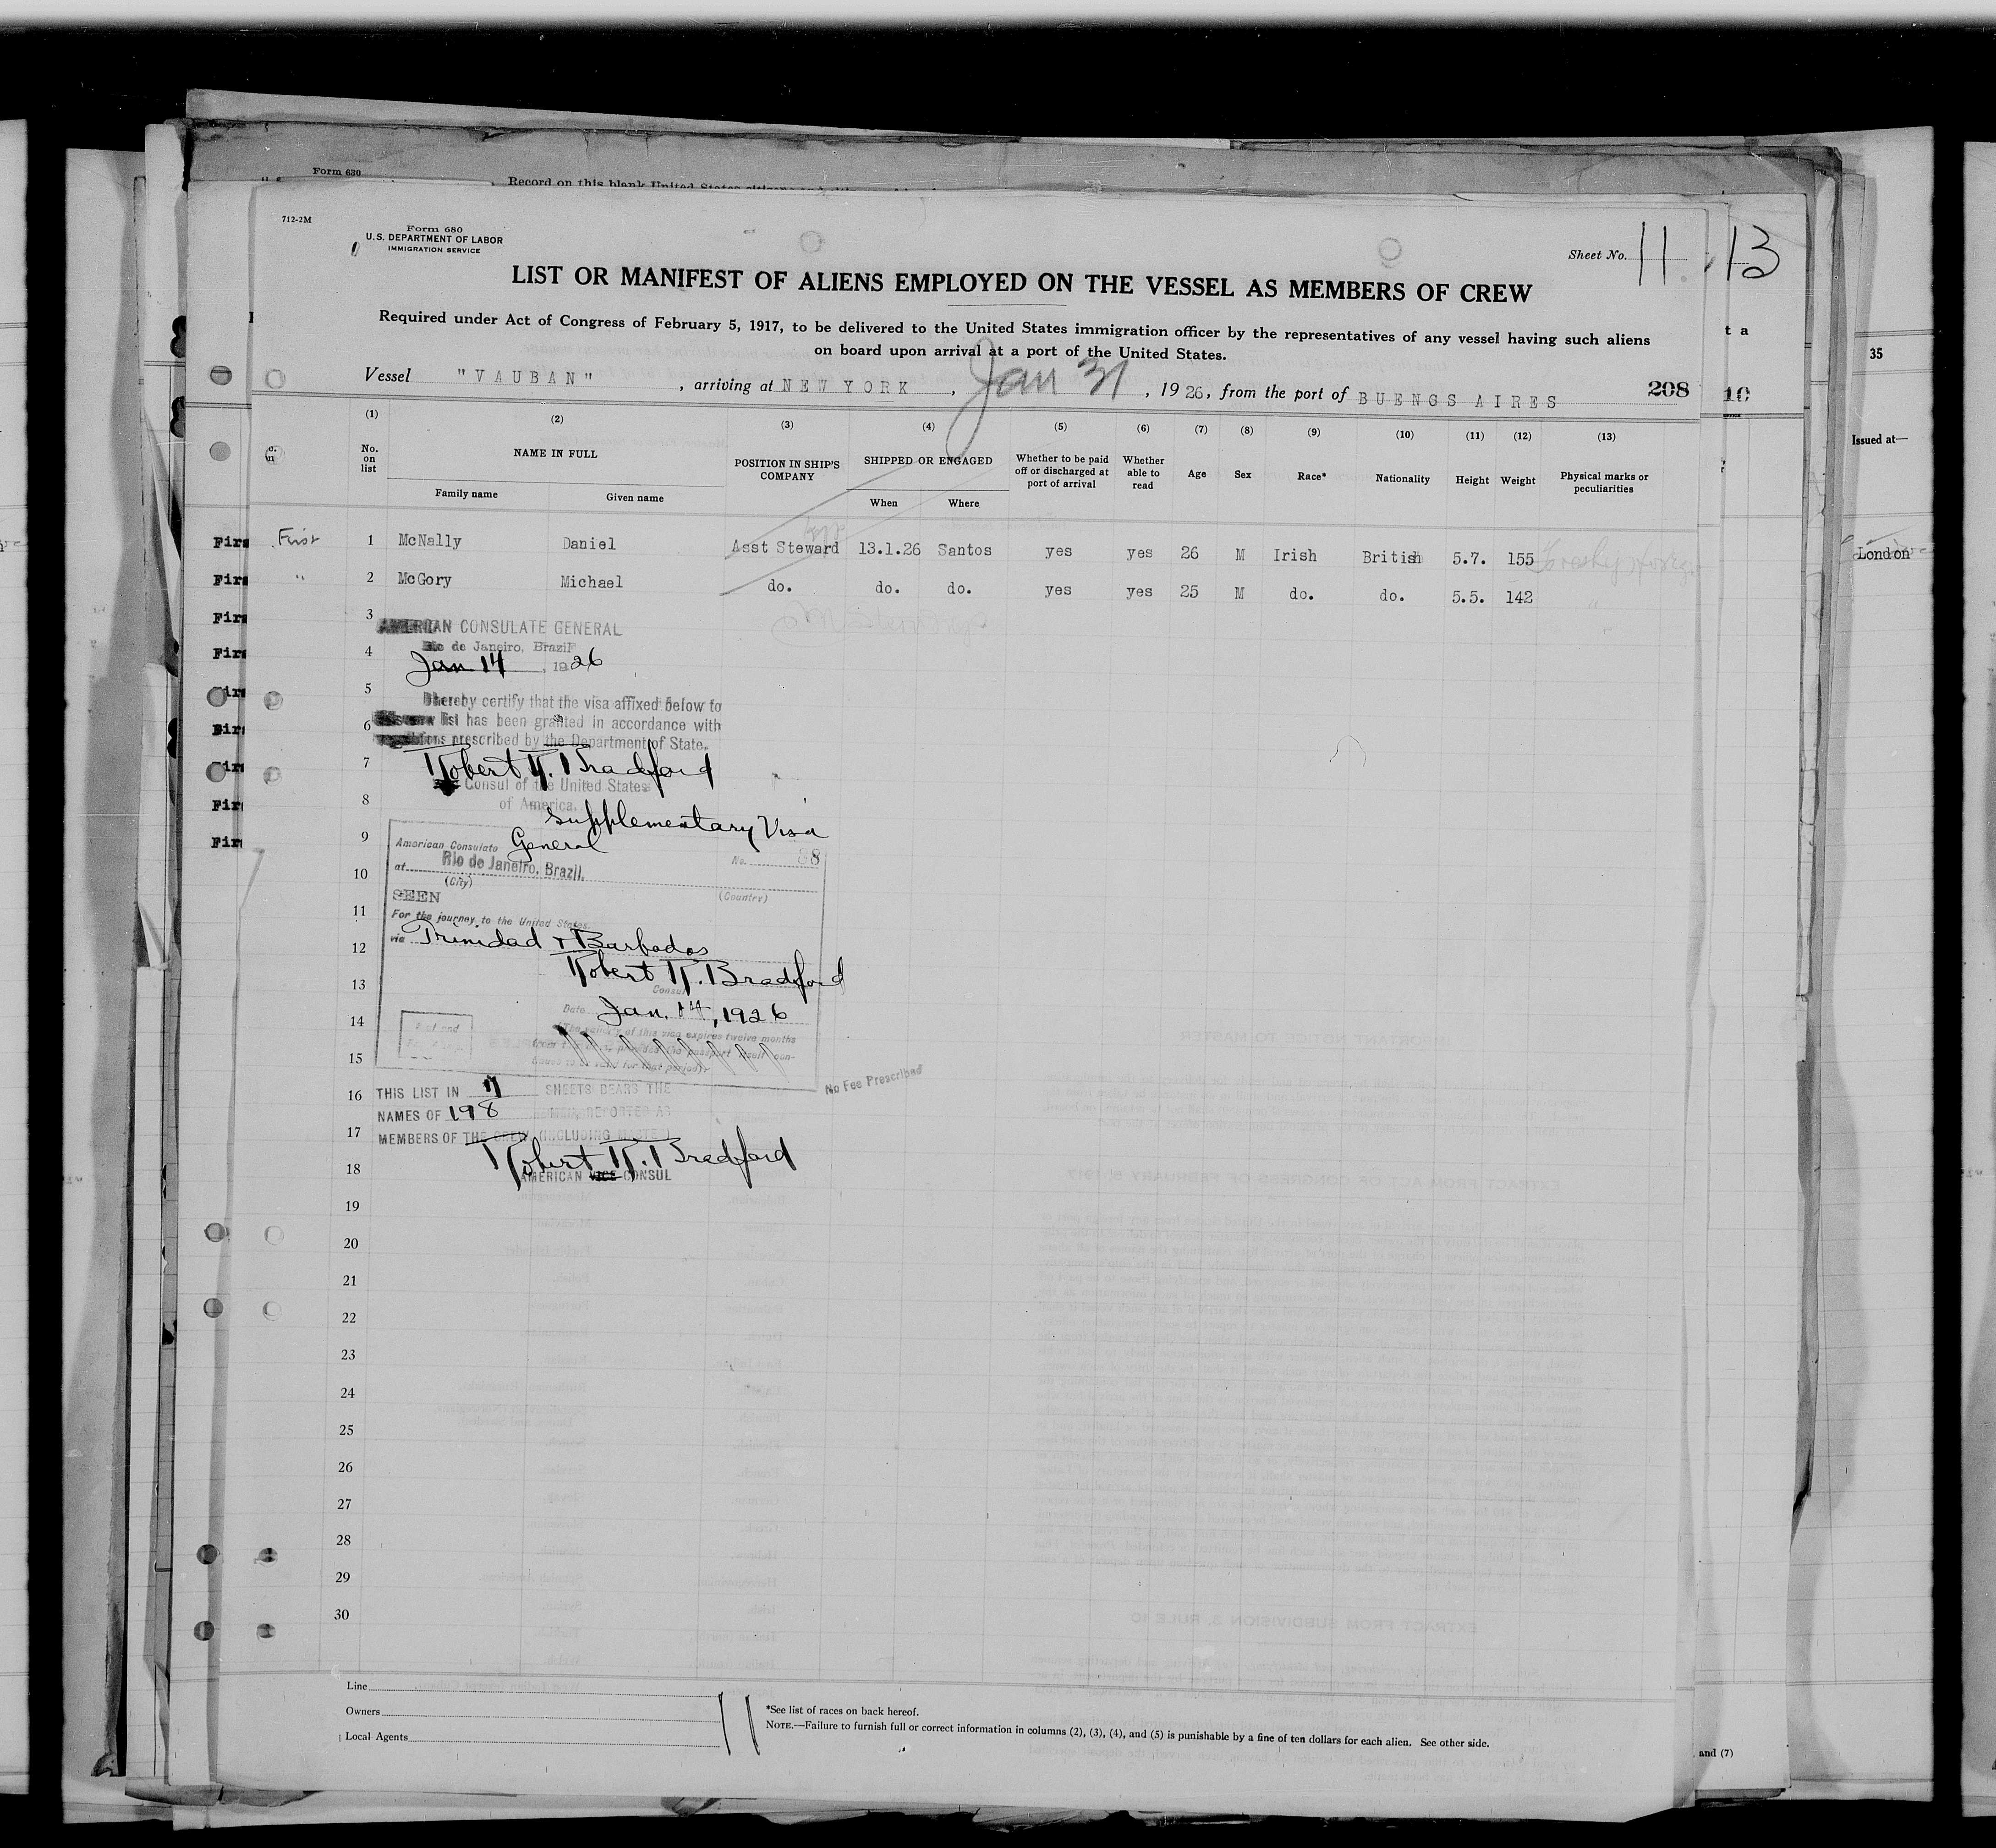 Form 630
Record on this blank United States
712-2M
Form 680
U.S. DEPARTMENT OF LABOR
IMMIGRATION SERVICE
Sheet No. 11
13
LIST OR MANIFEST OF ALIENS EMPLOYED ON THE VESSEL AS MEMBERS OF CREW
Required under Act of Congress of February 5, 1917, to be delivered to the United States immigration officer by the representatives of any vessel having such aliens
on board upon arrival at a port of the United States.
Vessel "VAUBAN", arriving at NEW YORK, Jan 31, 1926, from the port of BUENGS AIRES
208
10
35
Issued at—
(1) (2) (3) (4) (5) (6) (7) (8) (9) (10) (11) (12) (13)
No. on list
NAME IN FULL
Family name
Given name
POSITION IN SHIP'S COMPANY
SHIPPED OR ENGAGED
When
Where
Whether to be paid off or discharged at port of arrival
Whether able to read
Age
Sex
Race*
Nationality
Height
Weight
Physical marks or peculiarities
First 1 McNally Daniel Asst Steward 13.1.26 Santos yes yes 26 M Irish British 5.7. 155
London
" 2 McGory Michael do. do. do. yes yes 25 M do. do. 5.5. 142 "
3
AMERICAN CONSULATE GENERAL
Rio de Janeiro, Brazil
4
Jan 14, 1926
5
I hereby certify that the visa affixed below to
6
list has been granted in accordance with
regulations prescribed by the Department of State.
7
Robert R. Bradford
Consul of the United States
8
of America.
Supplementary Visa
9
American Consulate General
No. 88
at Rio de Janeiro, Brazil.
10
(City)
(Country)
SEEN
11
For the journey to the United States
via Trinidad & Barbados
12
Robert R. Bradford
13
Consul
Date Jan. 14, 1926
14
(The validity of this visa expires twelve months
from this date, provided the passport itself con-
15
tinues to be valid for that period).
No Fee Prescribed
16
THIS LIST IN 11 SHEETS BEARS THE
NAMES OF 198 MEN, REPORTED AS
17
MEMBERS OF THE CREW (INCLUDING MASTER)
Robert R. Bradford
18
AMERICAN VICE CONSUL
19
20
21
22
23
24
25
26
27
28
29
30
Line
Owners
Local Agents
11
*See list of races on back hereof.
NOTE.—Failure to furnish full or correct information in columns (2), (3), (4), and (5) is punishable by a fine of ten dollars for each alien. See other side.
and (7)